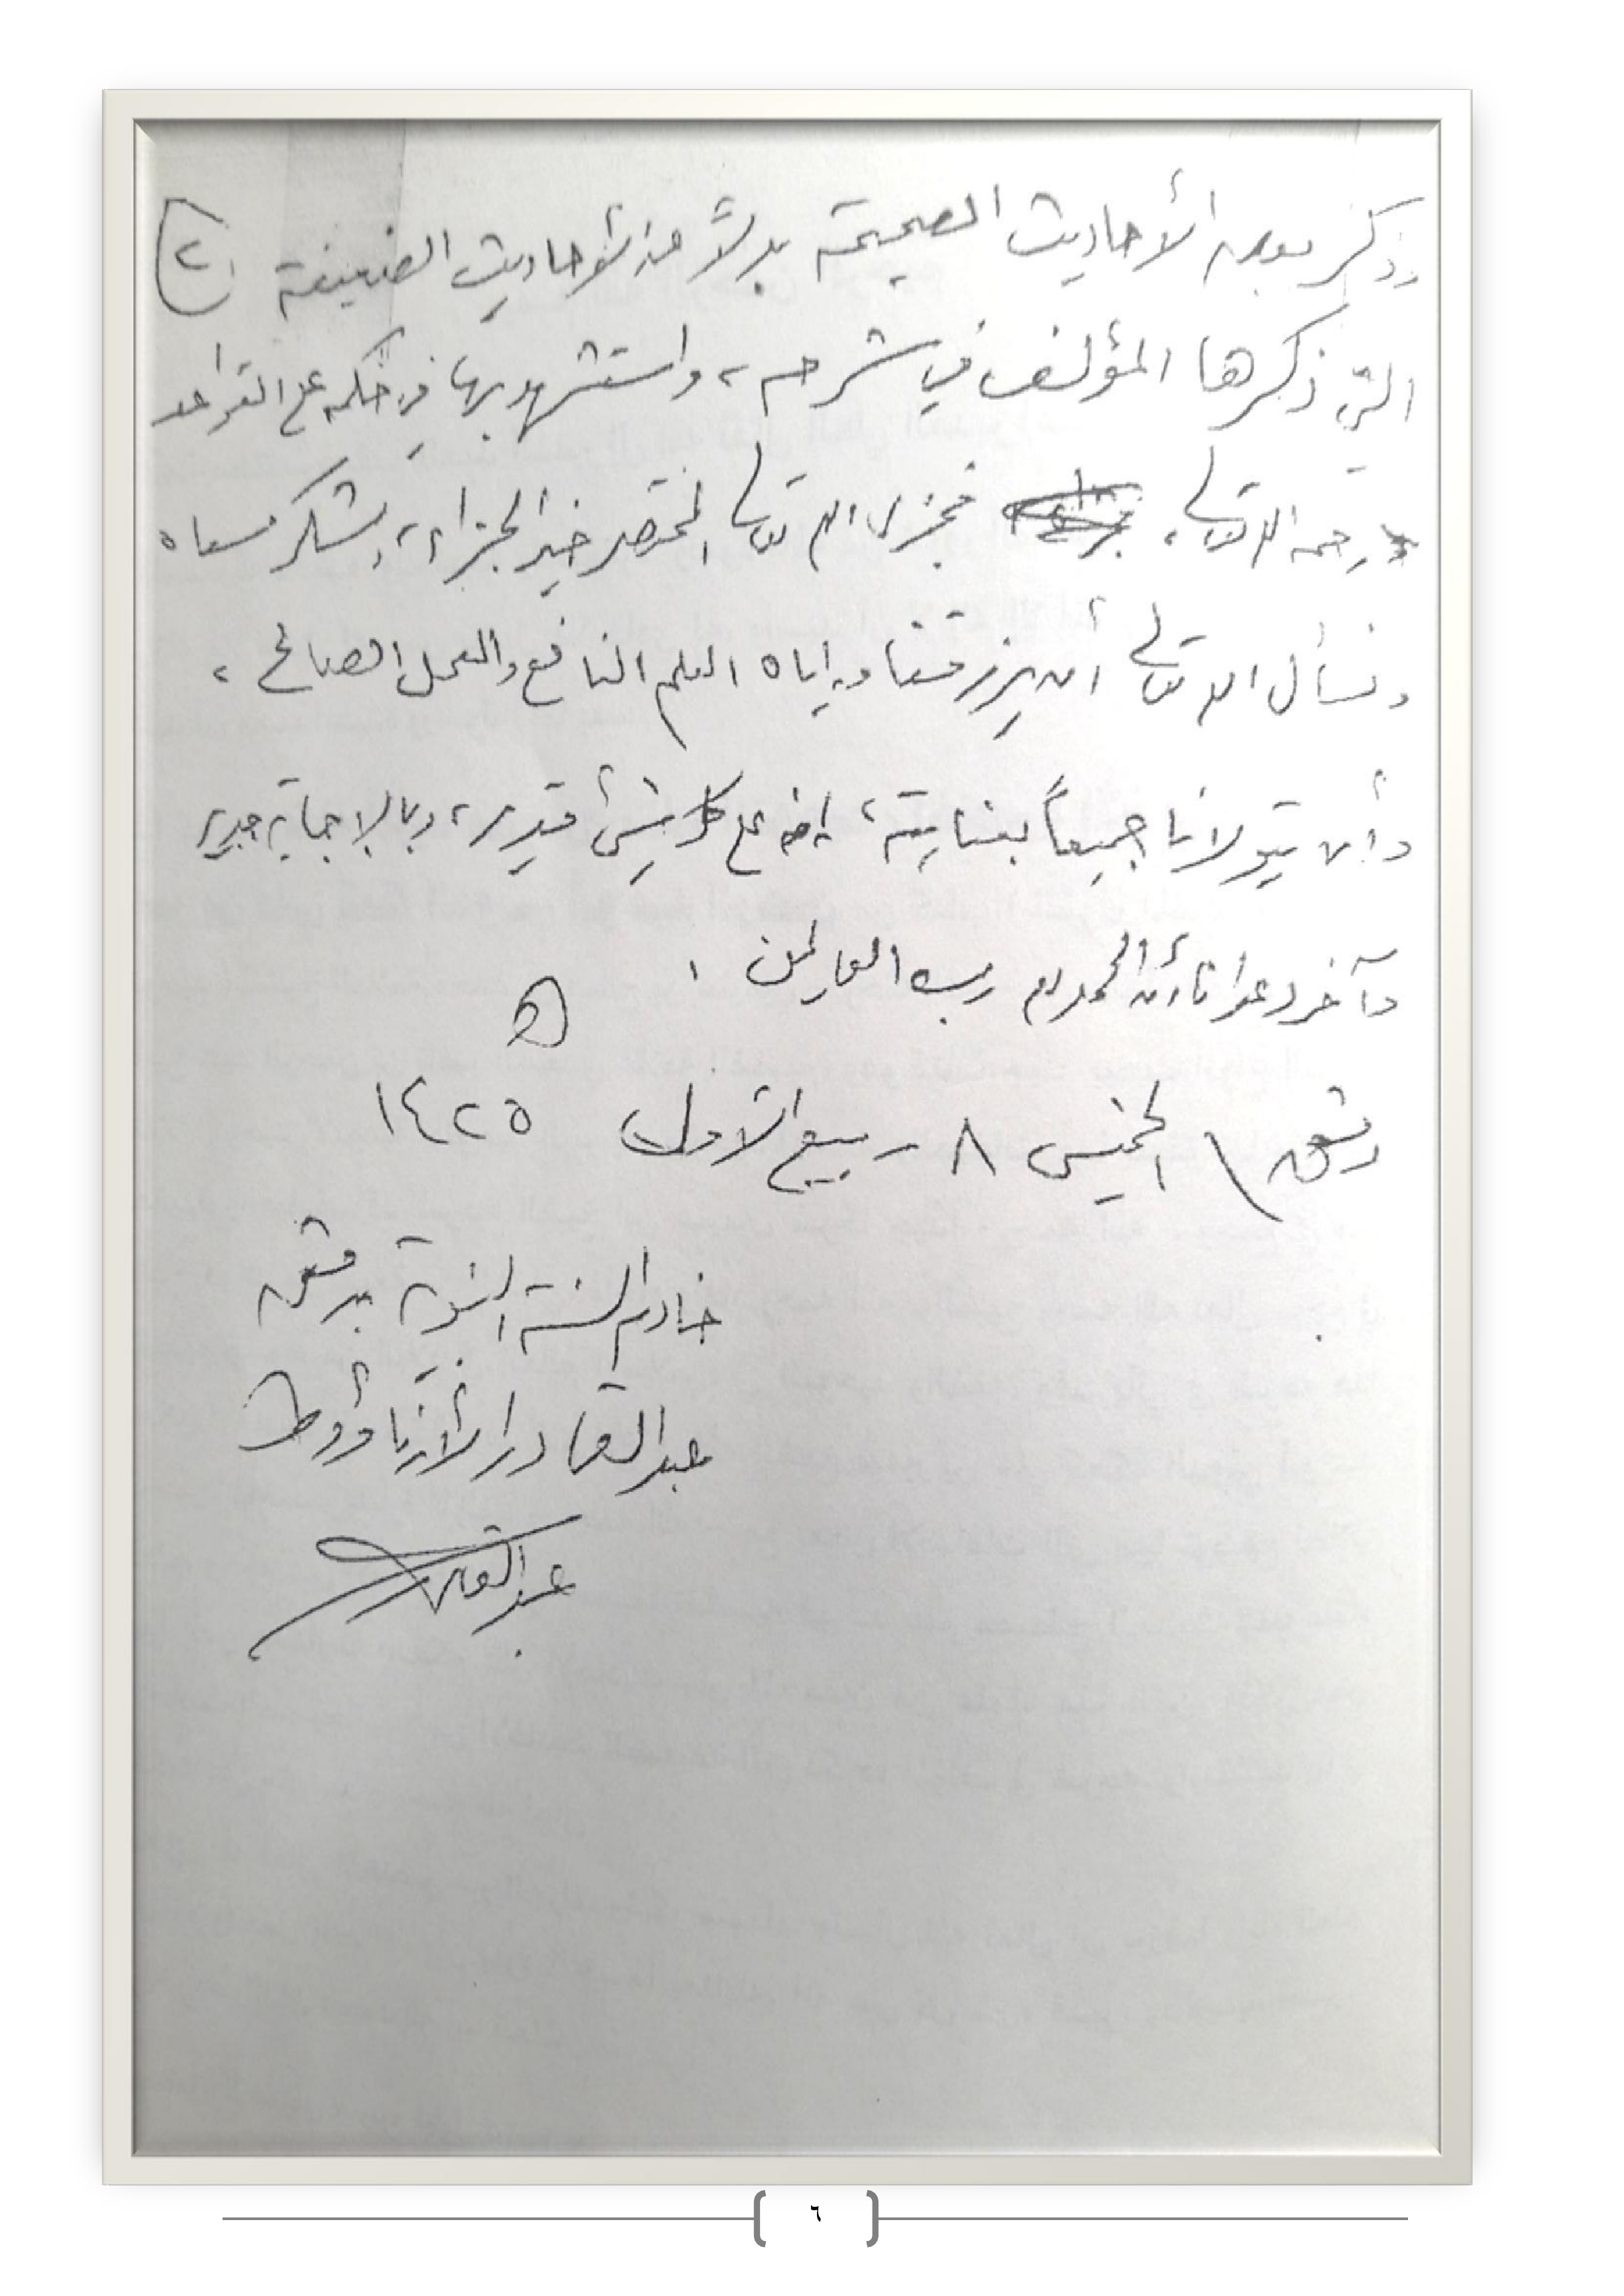 وذكر بعض الأحاديث الصحيحة بدلاً من الأحاديث الضعيفة ٢
التي ذكرها المؤلف في شرحه، واستشهد بها في حكمه على القواعد
رحمه الله تعالى، فجزى الله تعالى المختصر خير الجزاء، وشكر مسعاه
ونسأل الله تعالى أن يرزقنا وإياه العلم النافع والعمل الصالح،
وأن يتولانا جميعاً بعنايته، إنه على كل شيء قدير، وبالإجابة جدير
وآخر دعوانا أن الحمد لله رب العالمين.
دمشق \ الخميس ٨ ربيع الأول ١٤٢٥
خادم السنة النبوية بدمشق
عبد القادر الأرناؤوط
عبد القادر
٦